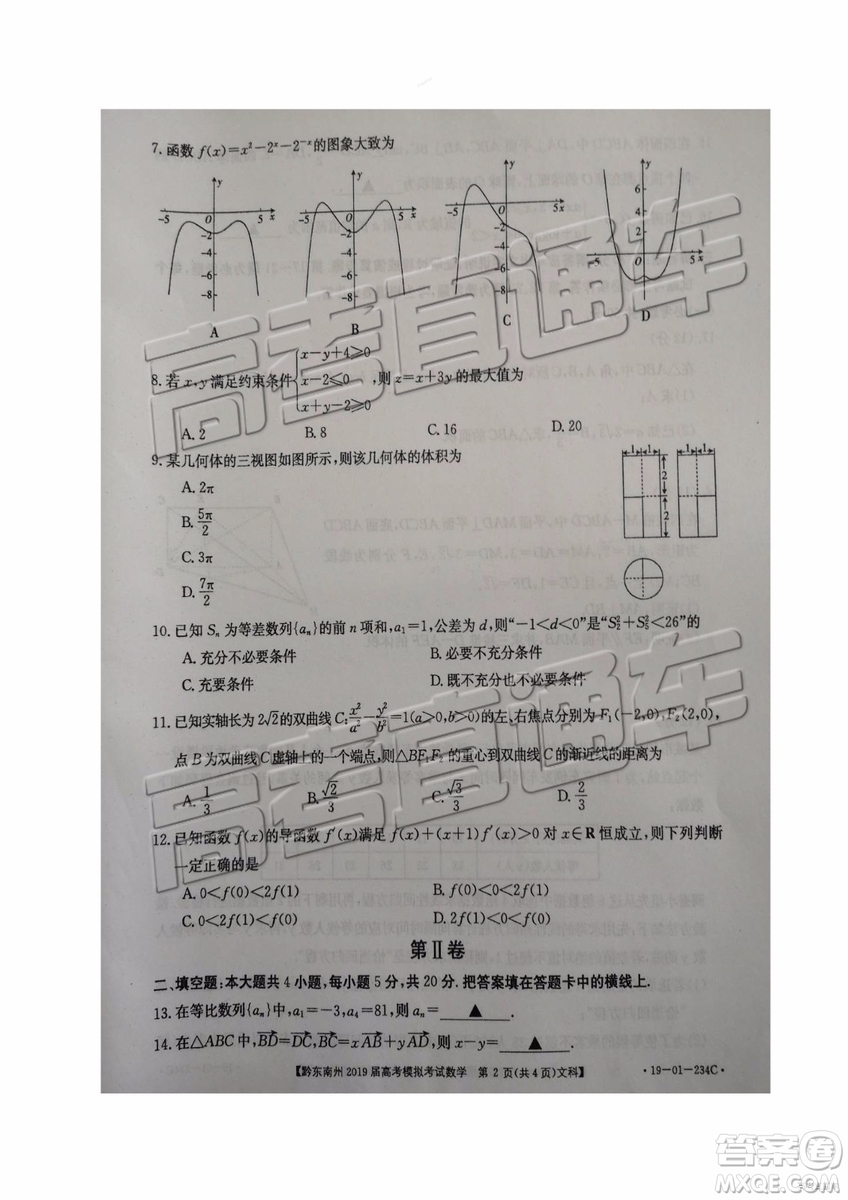 7.函数 f(x)=x²-2ˣ-2⁻ˣ的图象大致为
A B C D
8.若 x,y 满足约束条件{x-y+4≥0 x-2≤0 x+y-2≥0,则 z=x+3y 的最大值为
A.2 B.8 C.16 D.20
9.某几何体的三视图如图所示,则该几何体的体积为
A.2π
B.5π/2
C.3π
D.7π/2
10.已知 Sₙ 为等差数列{aₙ}的前 n 项和,a₁=1,公差为 d,则“-1<d<0”是“S₂²+S₃²<26”的
A.充分不必要条件 B.必要不充分条件
C.充要条件 D.既不充分也不必要条件
11.已知实轴长为 2√2的双曲线 C:x²/a²-y²/b²=1(a>0,b>0)的左、右焦点分别为 F₁(-2,0),F₂(2,0),
点 B 为双曲线 C 虚轴上的一个端点,则△BF₁F₂的重心到双曲线 C 的渐近线的距离为
A.1/3 B.√2/3 C.√3/3 D.2/3
12.已知函数 f(x)的导函数 f′(x)满足 f(x)+(x+1)f′(x)>0 对 x∈R 恒成立,则下列判断
一定正确的是
A.0<f(0)<2f(1) B.f(0)<0<2f(1)
C.0<2f(1)<f(0) D.2f(1)<0<f(0)
第Ⅱ卷
二、填空题:本大题共 4 小题,每小题 5 分,共 20 分.把答案填在答题卡中的横线上.
13.在等比数列{aₙ}中,a₁=-3,a₄=81,则 aₙ=▲.
14.在△ABC 中,BD→=DC→,BC→=xAB→+yAD→,则 x-y=▲.
【黔东南州 2019 届高考模拟考试数学 第 2 页(共 4 页)文科】 ·19-01-234C·
高考直通车
高考直通车
答案圈